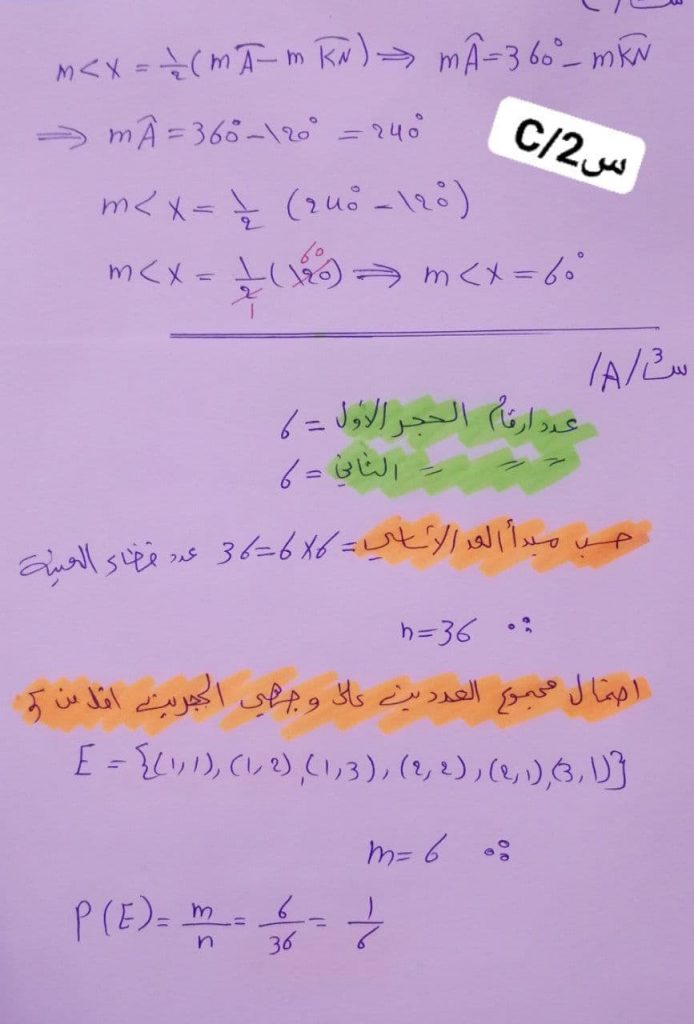 m<X = 1/2 (mÂ - m K̂N) ⇒ mÂ = 360° - mK̂N
⇒ mÂ = 360° - 120° = 240°
س2/C
m<X = 1/2 (240° - 120°)
m<X = 1/2 (120) ⇒ m<X = 60°
60
1
س3/A/
عدد ارقام الحجر الأول = 6
= = = الثاني = 6
حسب مبدأ العد الأساسي = 6×6=36 عدد فضاء العينة
∴ n=36
احتمال مجموع العددين على وجهي الحجرين اقل من 5
E = {(1,1), (1,2), (1,3), (2,2), (2,1), (3,1)}
∴ m=6
P(E) = m/n = 6/36 = 1/6